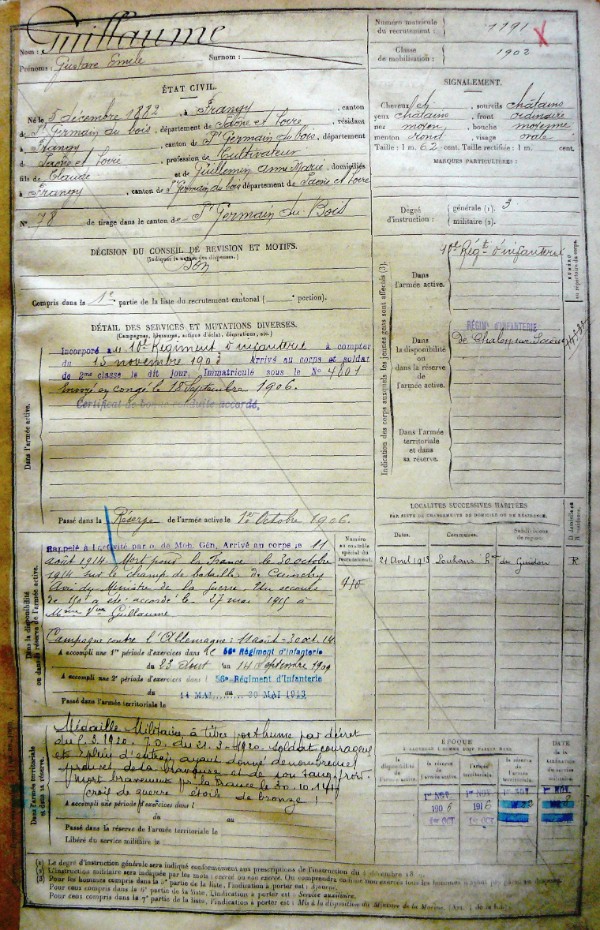 Nom : Guillaume
Prénoms : Gustave Emile Surnom :
Numéro matricule du recrutement : 1191
Classe de mobilisation : 1902
ÉTAT CIVIL.
Né le 5 décembre 1882, à Frangy, canton
de St Germain du bois, département de Saône et Loire, résidant
à Frangy, canton de St Germain du bois, département
de Saône et Loire, profession de Cultivateur
fils de Claude et de Guillemin Anne Marie, domiciliés
à Frangy, canton de St Germain du bois département de Saone et Loire
N° 78 de tirage dans le canton de St Germain du Bois
SIGNALEMENT.
Cheveux et sourcils châtains
yeux châtains, front ordinaire
nez moyen, bouche moyenne
menton rond, visage ovale
Taille : 1 m. 62 cent. Taille rectifiée : 1 m. cent.
MARQUES PARTICULIÈRES :
Degré d'instruction : générale (1). 3
militaire (2).
DÉCISION DU CONSEIL DE REVISION ET MOTIFS.
Bon
Compris dans la 1re partie de la liste du recrutement cantonal ( portion).
DÉTAIL DES SERVICES ET MUTATIONS DIVERSES.
(Campagnes, blessures, actions d'éclat, décorations, etc.)
Incorporé au 10e Régiment d'infanterie à compter
du 15 novembre 1903 Arrivé au corps et soldat
de 2me classe le dit jour. Immatriculé sous le No 4601
Envoyé en congé le 18 Septembre 1906.
Certificat de bonne conduite accordé.
Dans l'armée active.
Passé dans la Réserve de l'armée active le 1er Octobre 1906.
Indication des corps auxquels les jeunes gens sont affectés (3).
Dans l'armée active.
10e Régt d'infanterie
Dans la disponibilité ou dans la réserve de l'armée active.
RÉGIMt D'INFANTERIE
De Chalon sur Saône
Dans l'armée territoriale et dans sa réserve.
Dans la disponibilité ou dans la réserve de l'armée active.
Rappelé à l'activité par o. de Mob. Gén. Arrivé au corps le 11
août 1914. Mort pour la France le 30 octobre
1914 sur le champ de bataille de
Avis du Ministre de la Guerre. Un secours
de 150f a été accordé le 27 mai 1915 à
Mme Vve Guillaume
Campagne contre l'Allemagne : 11 août - 30 oct. 14
A accompli une 1re période d'exercices dans le 56e Régiment d'Infanterie
du 23 Aout au 14 Septembre 1909
A accompli une 2e période d'exercices dans l 56e Régiment d'Infanterie
du 14 MAI au 30 MAI 1912
Passé dans l'armée territoriale le
Numéro au contrôle spécial du recrutement.
LOCALITÉS SUCCESSIVES HABITÉES
PAR SUITE DE CHANGEMENT DE DOMICILE OU DE RÉSIDENCE.
Dates. Communes. Subdivisions de région. D. domicile R. résidence.
21 Avril 1913 Louhans R
Dans l'armée territoriale et dans sa réserve.
Médaille Militaire à titre posthume par décret
du J.O. du 21.3.1920. Soldat courageux
et plein d'entrain, ayant donné de nombreuses
preuves de sa bravoure et de son sang-froid.
Mort bravement pr la France le 30.10.14
croix de guerre étoile de bronze
A accompli une période d'exercices dans l
du au
Passé dans la réserve de l'armée territoriale le
Libéré du service militaire le
ÉPOQUE
À LAQUELLE L'HOMME DOIT PASSER DANS
la disponibilité de l'armée active. la réserve de l'armée active. l'armée territoriale. la réserve de l'armée territoriale.
DATE de la libération
1er NOV 1er NOV 1er NOV 1er NOV
1906 1916
1er OCT 1er OCT
Le degré d'instruction générale sera indiqué conformément aux prescriptions de l'instruction du 4 décembre 18